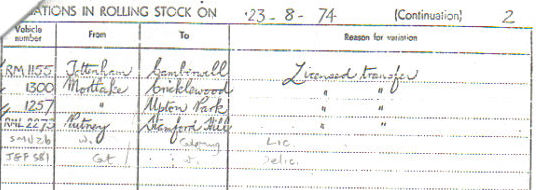 ATIONS IN ROLLING STOCK ON 23-8-74 (Continuation) 2
Vehicle number From To Reason for variation
RM1155 Tottenham Camberwell Licensed transfer
" 1300 Mortlake Cricklewood " "
" 1257 " Upton Park " "
RML2273 Putney Stamford Hill " "
SMU26 Lic
JGF581 Cat Delic.